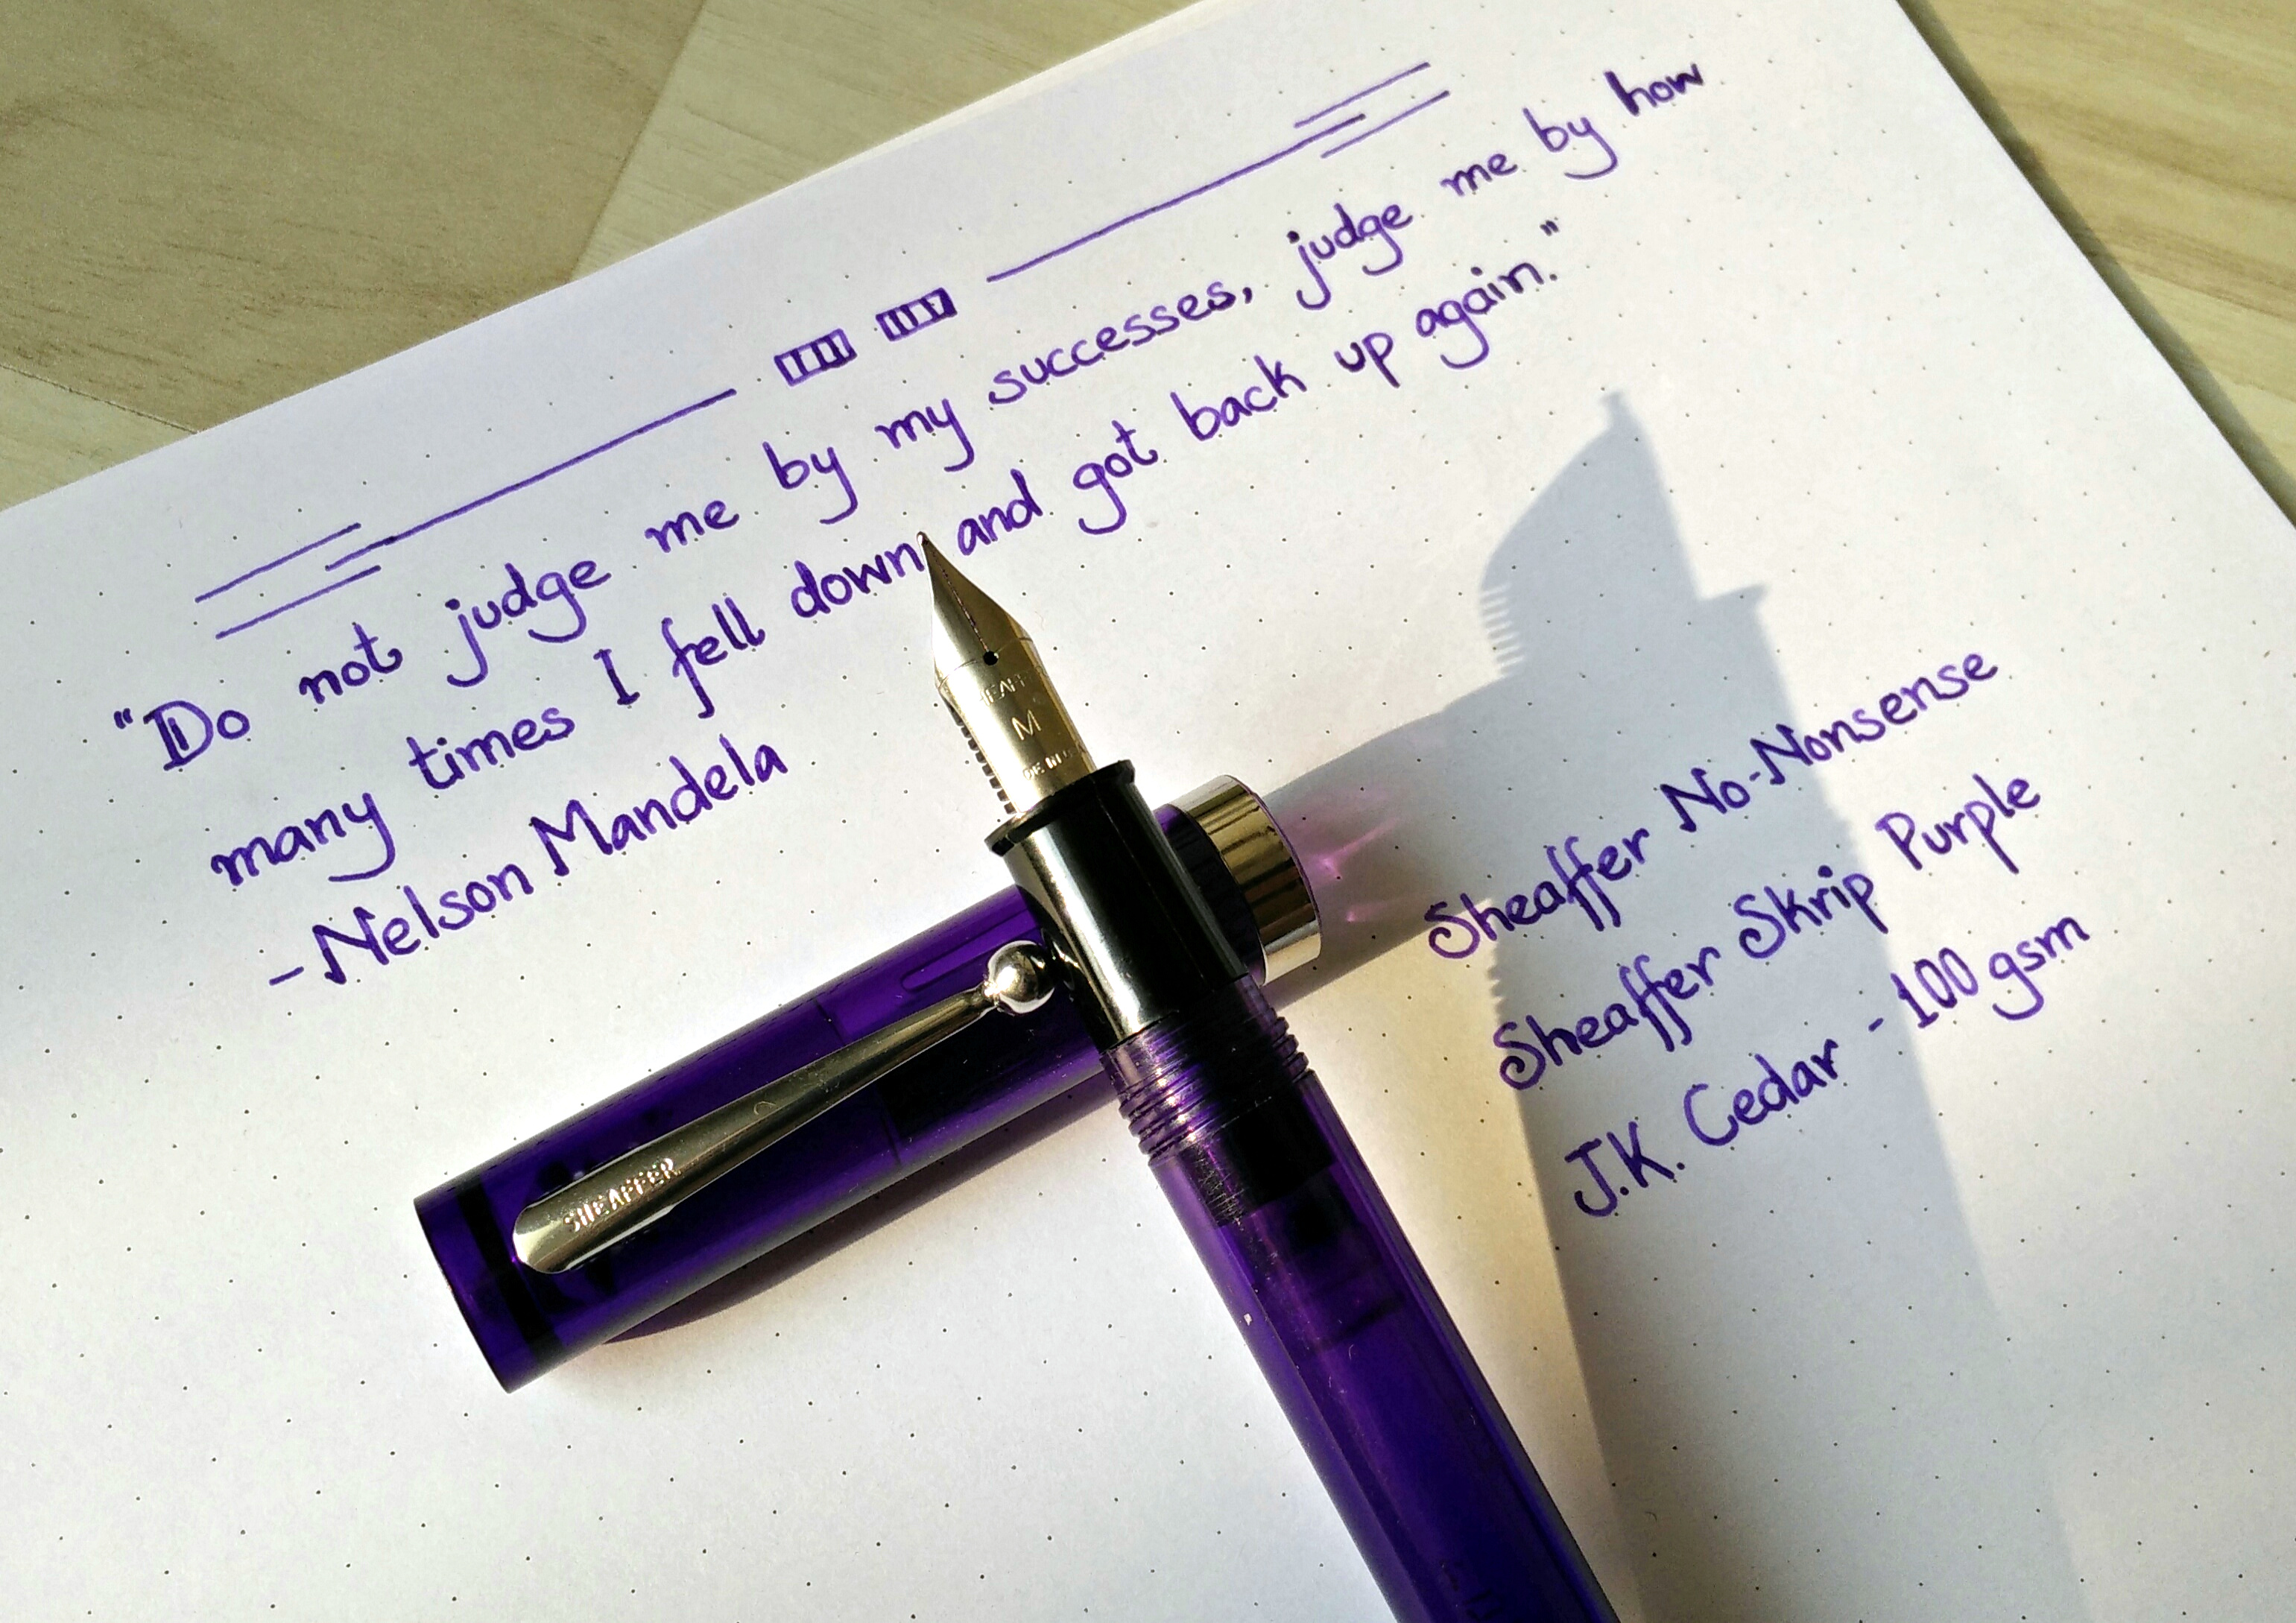 "Do not judge me by my successes, judge me by how
many times I fell down and got back up again."
- Nelson Mandela
M
SHEAFFER
Sheaffer No-Nonsense
Sheaffer Skrip Purple
J.K. Cedar - 100 gsm